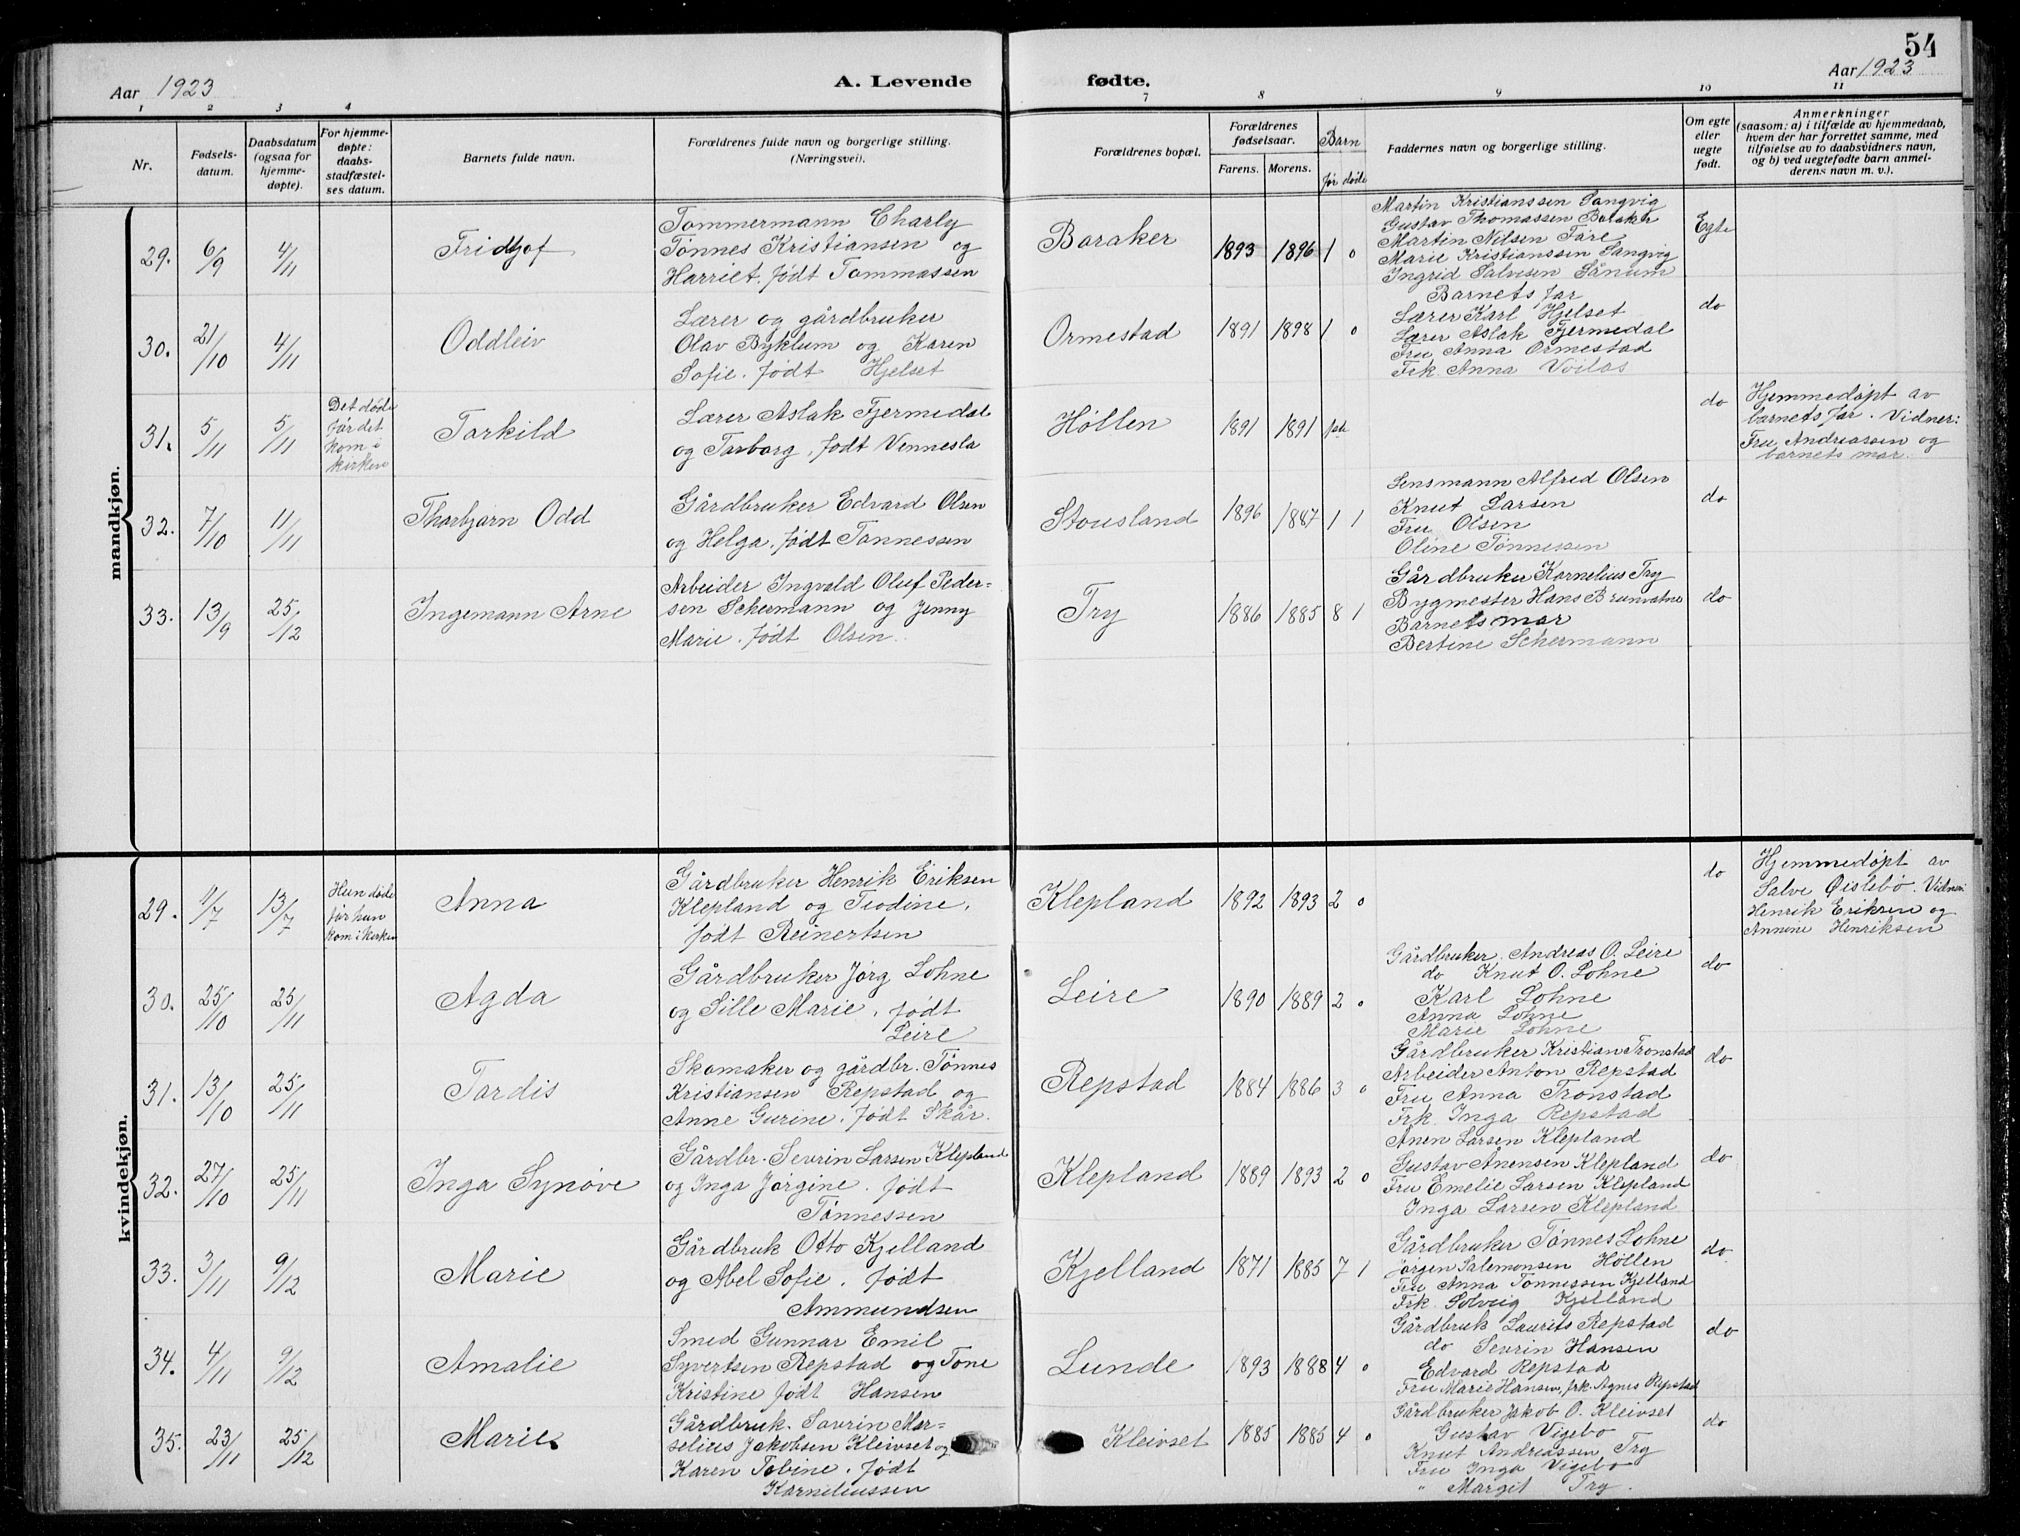 54
Aar 1923
A. Levende fødte.
Aar 1923
1 2 3 4 7 8 9 10 11
Nr.
Fødsels-
datum.
Daabsdatum
(ogsaa for
hjemme-
døpte).
For hjemme-
døpte:
daabs-
stadfæstel-
ses datum.
Barnets fulde navn.
Forældrenes fulde navn og borgerlige stilling.
(Næringsvei).
Forældrenes bopæl.
Forældrenes
fødselsaar.
Farens. Morens.
Barn
før døde
Faddernes navn og borgerlige stilling.
Om egte
eller
uegte
født.
Anmerkninger
(saasom: a) i tilfælde av hjemmedaab,
hvem der har forrettet samme, med
tilføielse av to daabsvidners navn,
og b) ved uegtefødte barn anmel-
derens navn m. v.).
mandkjøn.
29. 6/9 4/11
Fridtjof
Tømmermann Charly
Tønnes Kristiansen og
Harriet, født Tommassen
Baraker
1893 1896 1 0
Martin Kristianssen Sangvig
Gustav Thomassen Baraker
Martin Nilsen Fåre
Marie Kristianssen Sangvig
Ingrid Salvesen Sånum
Egte
30. 21/10 4/11
Oddleiv
Lærer og gårdbruker
Olav Byklum og Karen
Sofie, født Hjelset
Ormestad
1891 1898 1 0
Barnets far
Lærer Karl Hjelset
Lærer Aslak Fjermedal
Fru Anna Ormestad
Frk. Anna Voilås
do
31. 5/11 5/11
Det døde
før det
kom i
kirken
Tarkild
Lærer Aslak Fjermedal
og Torborg, født Vennesla
Høllen
1891 1891
do
Hjemmedøpt av
barnets far. Vidner:
Fru Andreassen og
barnets mor.
32. 7/10 11/11
Thorbjørn Odd
Gårdbruker Edvard Olsen
og Helga, født Tønnessen
Stousland
1896 1887 1 1
Lensmann Alfred Olsen
Knut Larsen
Fru Olsen
Oline Tønnessen
do
33. 13/9 25/12
Ingemann Arne
Arbeider Ingvald Oluf Peder-
sen Schermann og Jenny
Marie, født Olsen
Try
1886 1885 8 1
Gårdbruker Kornelius Try
Bygmester Hans Brunvatne
Barnets mor
Bertine Schermann
do
kvindekjøn.
29. 11/7 13/7
Hun døde
før hun
kom i kirken
Anna
Gårdbruker Henrik Eriksen
Klepland og Teodine,
født Reinertsen
Klepland
1892 1893 2 0
do
Hjemmedøpt av
Salve Øislebø. Vidner:
Henrik Eriksen og
Annine Henriksen
30. 25/10 25/11
Agda
Gårdbruker Jørg Lohne
og Sille Marie, født
Leire
Leire
1890 1889 2 0
Gårdbruker Andreas O. Leire
do Knut O. Lohne
Karl Lohne
Anna Lohne
Marie Lohne
do
31. 13/10 25/11
Tordis
Skomaker og gårdbr. Tønnes
Kristiansen Repstad og
Anne Gurine, født Skår.
Repstad
1884 1886 3 0
Gårdbruker Kristian Tronstad
Arbeider Anton Repstad
Fru Anna Tronstad
Frk. Inga Repstad
do
32. 27/10 25/11
Inga Synøve
Gårdbr. Severin Larsen Klepland
og Inga Jørgine, født
Tønnessen
Klepland
1889 1893 2 0
Anen Larsen Klepland
Gustav Anensen Klepland
Fru Emelie Larsen Klepland
Inga Larsen Klepland
do
33. 3/11 9/12
Marie
Gårdbruk Otto Kjelland
og Abel Sofie, født
Ammundsen
Kjelland
1871 1885 7 1
Gårdbruker Tønnes Lohne
Jørgen Salemonsen Høllen
Fru Anna Tønnessen Kjelland
Frk. Solveig Kjelland
do
34. 4/11 9/12
Amalie
Smed Gunnar Emil
Syvertsen Repstad og Tone
Kristine født Hansen
Lunde
1893 1888 4 0
Gårdbruk Laurits Repstad
do Severin Hansen
Edvard Repstad
Fru Marie Hansen, frk. Agnes Repstad
do
35. 23/11 25/12
Marie
Gårdbruk. Søvrin Mar-
selius Jakobsen Kleivset og
Karen Tobine, født
Korneliussen
Kleivset
1885 1885 4 0
Gårdbruker Jakob O. Kleivset
Gustav Vigebo
Knut Andreassen Try
Fru Inga Vigebo
" Margit Try.
do